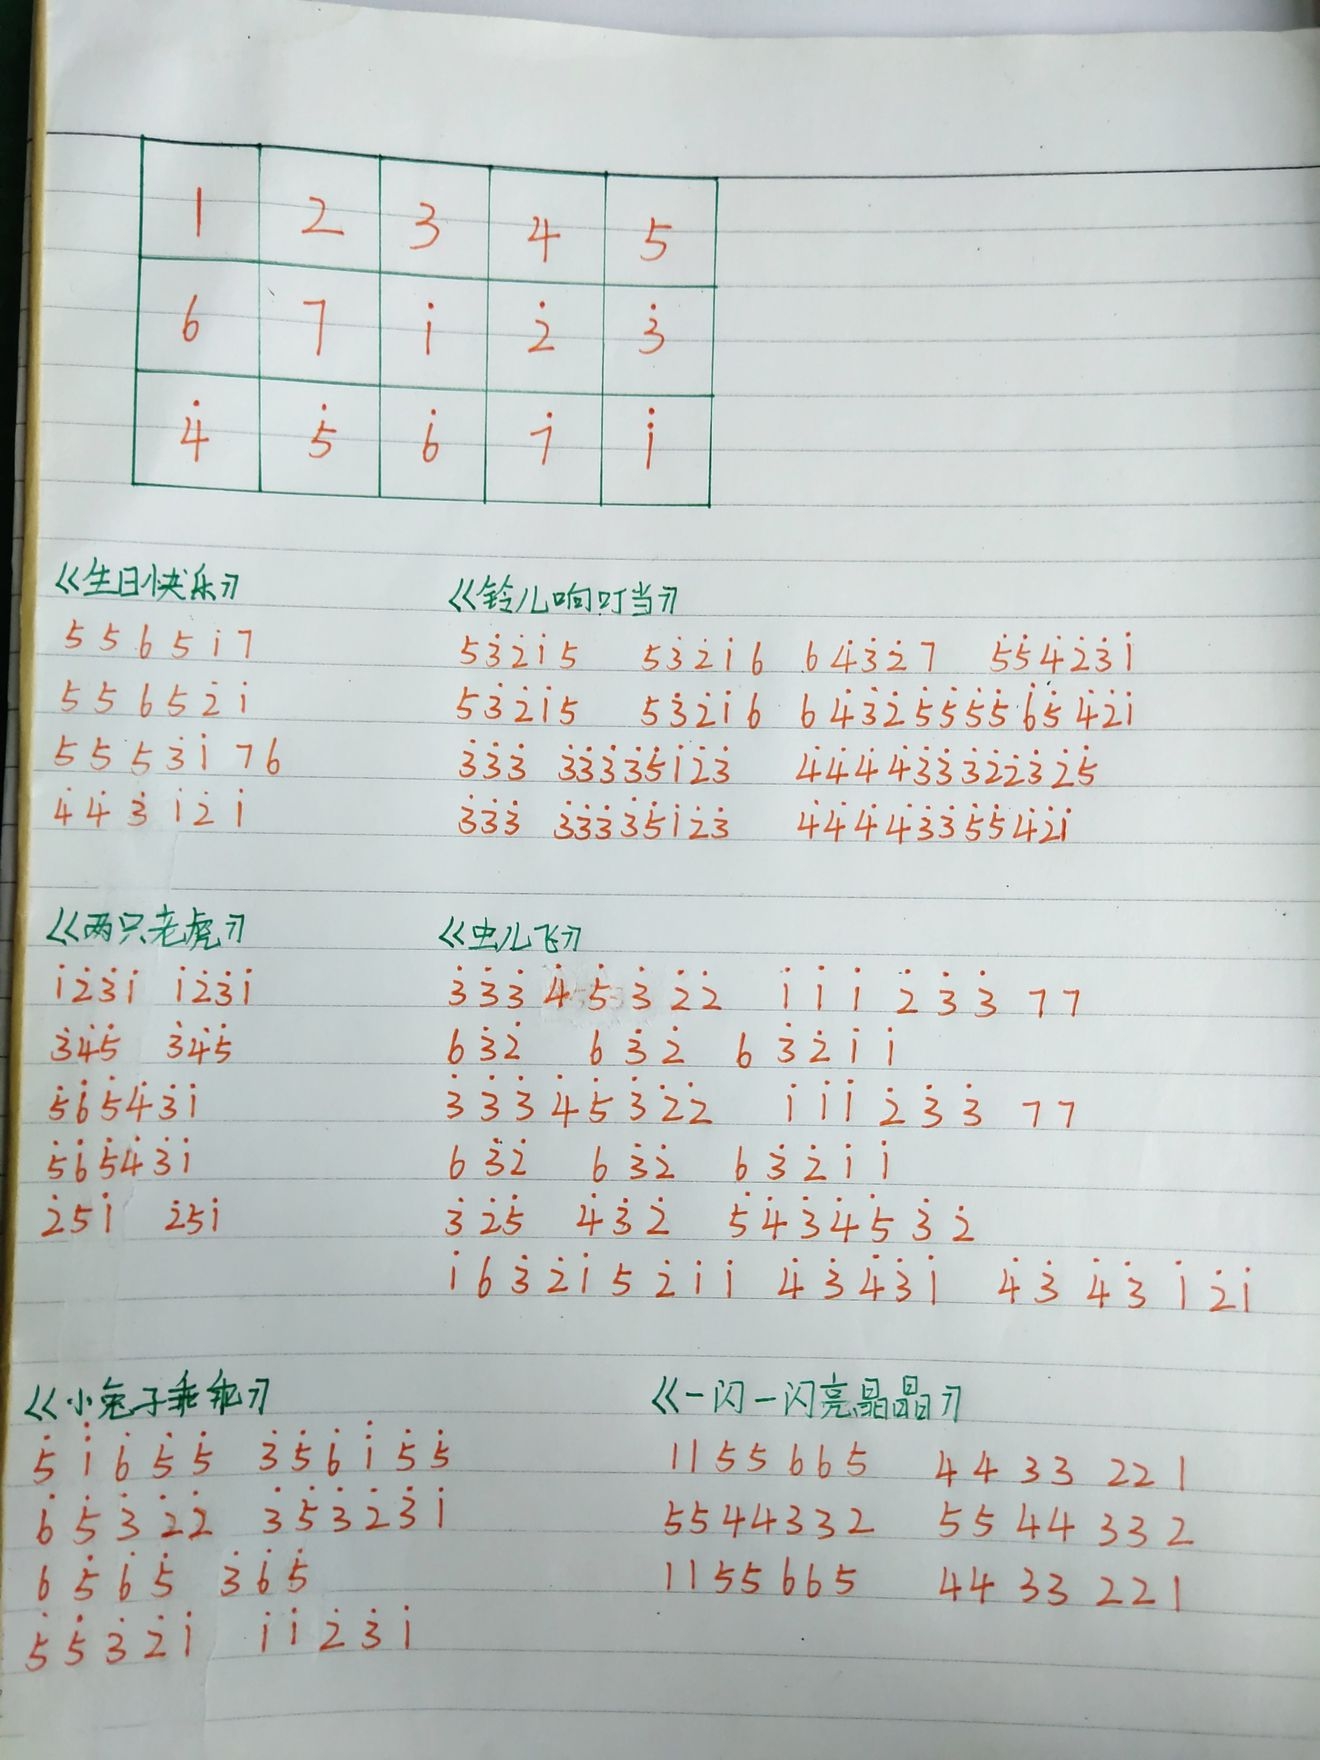 1 2 3 4 5
6 7 i 2̇ 3̇
4̇ 5̇ 6̇ 7̇ 1̈
《生日快乐》
5 5 6 5 i 7
5 5 6 5 2̇ i
5 5 5 3̇ i 7 6
4̇ 4̇ 3̇ i 2̇ i
《铃儿响叮当》
5 3̇ 2̇ i 5 5 3̇ 2̇ i 6 6 4̇ 3̇ 2̇ 7 5̇ 5̇ 4̇ 2̇ 3̇ i
5 3̇ 2̇ i 5 5 3̇ 2̇ i 6 6 4̇ 3̇ 2̇ 5̇ 5̇ 5̇ 5̇ 6̇ 5̇ 4̇ 2̇ i
3̇ 3̇ 3̇ 3̇ 3̇ 3̇ 3̇ 5̇ i 2̇ 3̇ 4̇ 4̇ 4̇ 4̇ 3̇ 3̇ 3̇ 2̇ 2̇ 3̇ 2̇ 5̇
3̇ 3̇ 3̇ 3̇ 3̇ 3̇ 3̇ 5̇ i 2̇ 3̇ 4̇ 4̇ 4̇ 4̇ 3̇ 3̇ 5̇ 5̇ 4̇ 2̇ i
《两只老虎》
i 2̇ 3̇ i i 2̇ 3̇ i
3̇ 4̇ 5̇ 3̇ 4̇ 5̇
5̇ 6̇ 5̇ 4̇ 3̇ i
5̇ 6̇ 5̇ 4̇ 3̇ i
2̇ 5 i 2̇ 5 i
《虫儿飞》
3̇ 3̇ 3̇ 4̇ 5̇ 3̇ 2̇ 2̇ i i i 2̇ 3̇ 3̇ 7 7
6 3̇ 2̇ 6 3̇ 2̇ 6 3̇ 2̇ i i
3̇ 3̇ 3̇ 4̇ 5̇ 3̇ 2̇ 2̇ i i i 2̇ 3̇ 3̇ 7 7
6 3̇ 2̇ 6 3̇ 2̇ 6 3̇ 2̇ i i
3̇ 2̇ 5̇ 4̇ 3̇ 2̇ 5̇ 4̇ 3̇ 4̇ 5̇ 3̇ 2̇
i 6 3̇ 2̇ i 5 2̇ i i 4̇ 3̇ 4̇ 3̇ i 4̇ 3̇ 4̇ 3̇ i 2̇ i
《小兔子乖乖》
5̇ 1̈ 6̇ 5̇ 5̇ 3̇ 5̇ 6̇ i 5̇ 5̇
6̇ 5̇ 3̇ 2̇ 2̇ 3̇ 5̇ 3̇ 2̇ 3̇ i
6 5̇ 6̇ 5̇ 3̇ 6̇ 5̇
5̇ 5̇ 3̇ 2̇ i i i 2̇ 3̇ i
《一闪一闪亮晶晶》
1 1 5 5 6 6 5 4 4 3 3 2 2 1
5 5 4 4 3 3 2 5 5 4 4 3 3 2
1 1 5 5 6 6 5 4 4 3 3 2 2 1